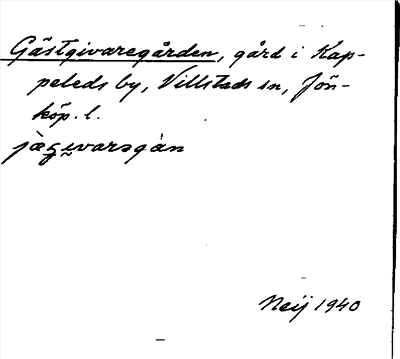 Gästgivaregården, gård i Kap-
peleds by, Villstads sn, Jön-
köp. l.
jägivarsgàn
Neij 1940